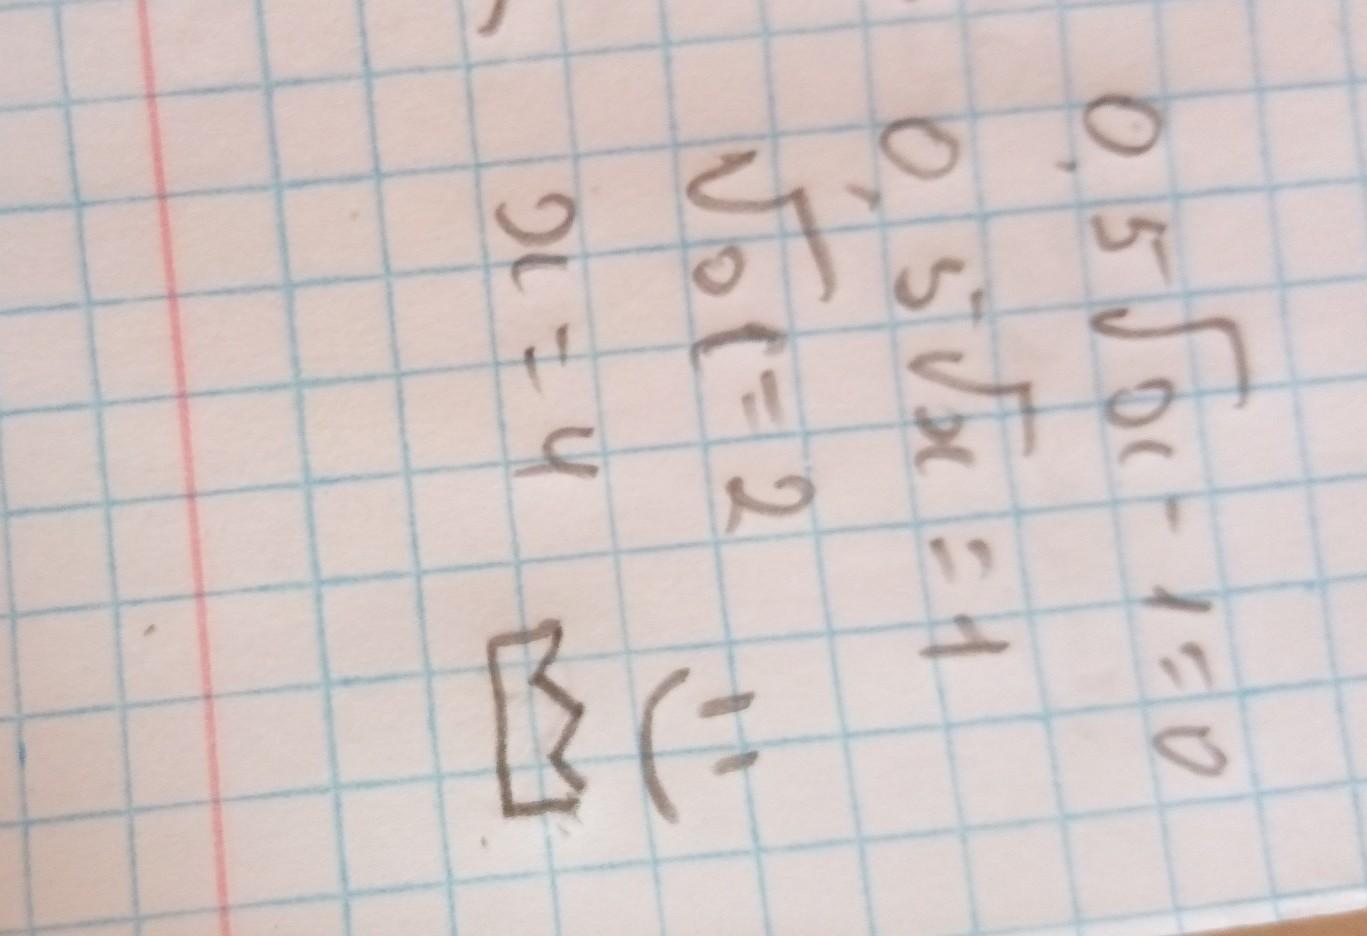 0,5√x - 1 = 0
0,5√x = 1
√x = 2
x = 4